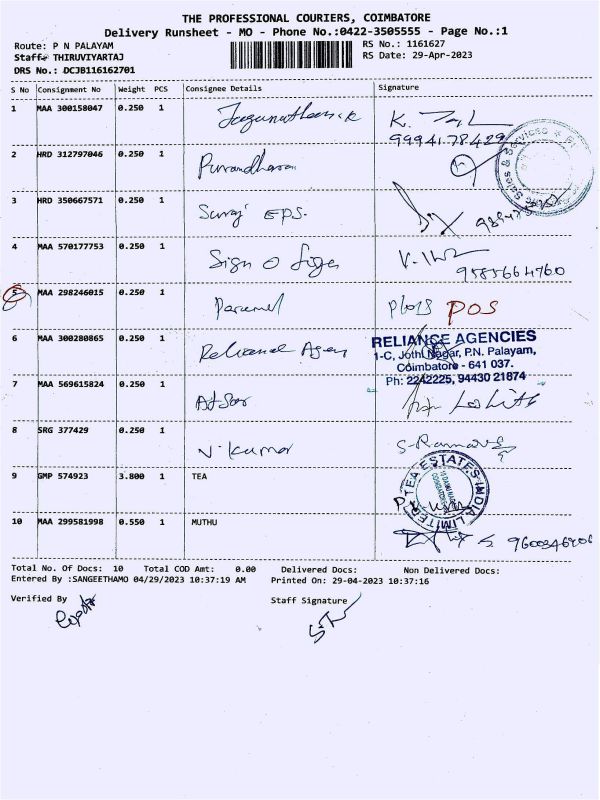 THE PROFESSIONAL COURIERS, COIMBATORE
Delivery Runsheet - MO - Phone No.:0422-3505555 - Page No.:1
Route: P N PALAYAM
RS No.: 1161627
Staff: THIRUVIYARTAJ
RS Date: 29-Apr-2023
DRS No.: DCJB116162701
S No Consignment No Weight PCS Consignee Details Signature
1 MAA 300158047 0.250 1 Jagannathan.K
99941.78429
2 HRD 312797046 0.250 1 Purandharan
Sales & Services
3 HRD 350667571 0.250 1 Suraj EPS.
4 MAA 570177753 0.250 1 Sign O
9585664760
5 MAA 298246015 0.250 1 POS
6 MAA 300280865 0.250 1 Reliance Agen
RELIANCE AGENCIES
1-C, Jothi Nagar, P.N. Palayam,
Coimbatore - 641 037.
Ph: 2242225, 94430 21874
7 MAA 569615824 0.250 1
8 SRG 377429 0.250 1 N. Kumar
9 GMP 574923 3.800 1 TEA
TEA ESTATES INDIA LIMITED
10 MAA 299581998 0.550 1 MUTHU
Total No. Of Docs: 10 Total COD Amt: 0.00 Delivered Docs: Non Delivered Docs:
Entered By :SANGEETHAMO 04/29/2023 10:37:19 AM Printed On: 29-04-2023 10:37:16
Verified By
Staff Signature